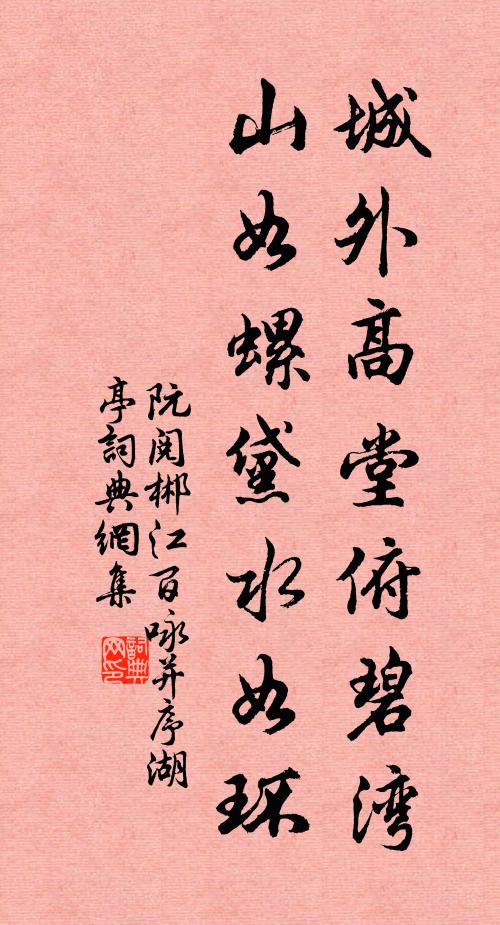 城外高堂俯碧湾
山如螺黛水如环
阮阅郴江百咏并序湖
亭詞典網集
詞典網印